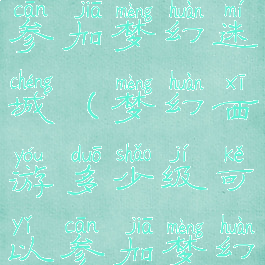 cān jiā mèng huàn mí
参加梦幻迷
chéng mèng huàn xī
城(梦幻西
yóu duō shǎo jí kě
游多少级可
yǐ cān jiā mèng huàn
以参加梦幻